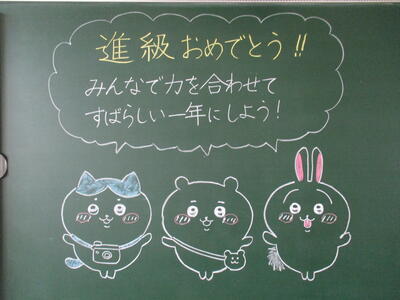 進級おめでとう!!
みんなで力を合わせて
すばらしい一年にしよう!